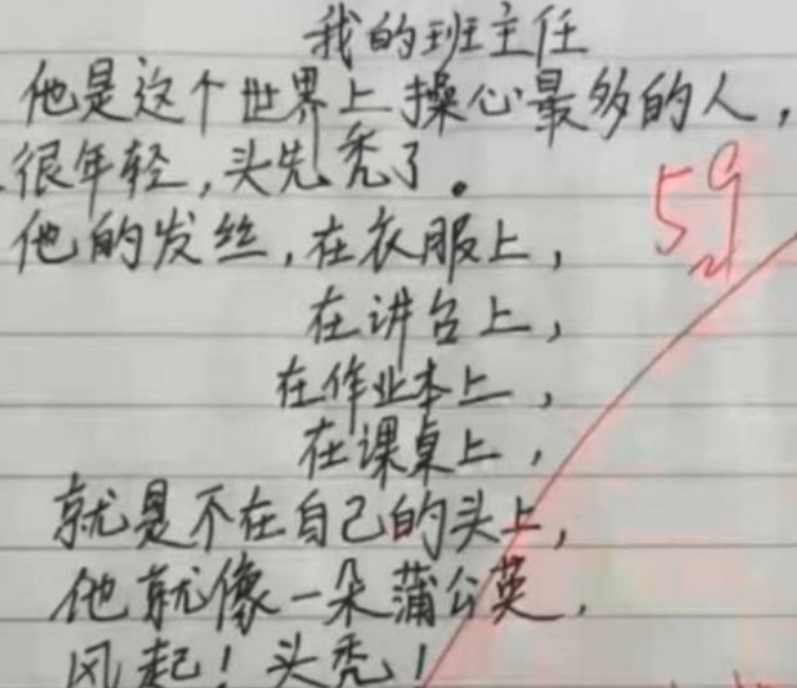 我的班主任
他是这个世界上操心最多的人，
很年轻，头先秃了。
59
他的发丝，在衣服上，
在讲台上，
在作业本上，
在课桌上，
就是不在自己的头上，
他就像一朵蒲公英，
风起！头秃！